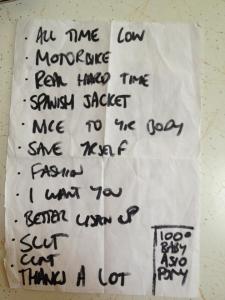 · ALL TIME LOW
· MOTORBIKE
· REAL HARD TIME
· SPANISH JACKET
· NICE TO YR BODY
· SAVE YRSELF
· FASHION
· I WANT YOU
· BETTER LISTEN UP
· SLUT
CUNT
THANKS A LOT
100°
BABY
ASIO
PONY